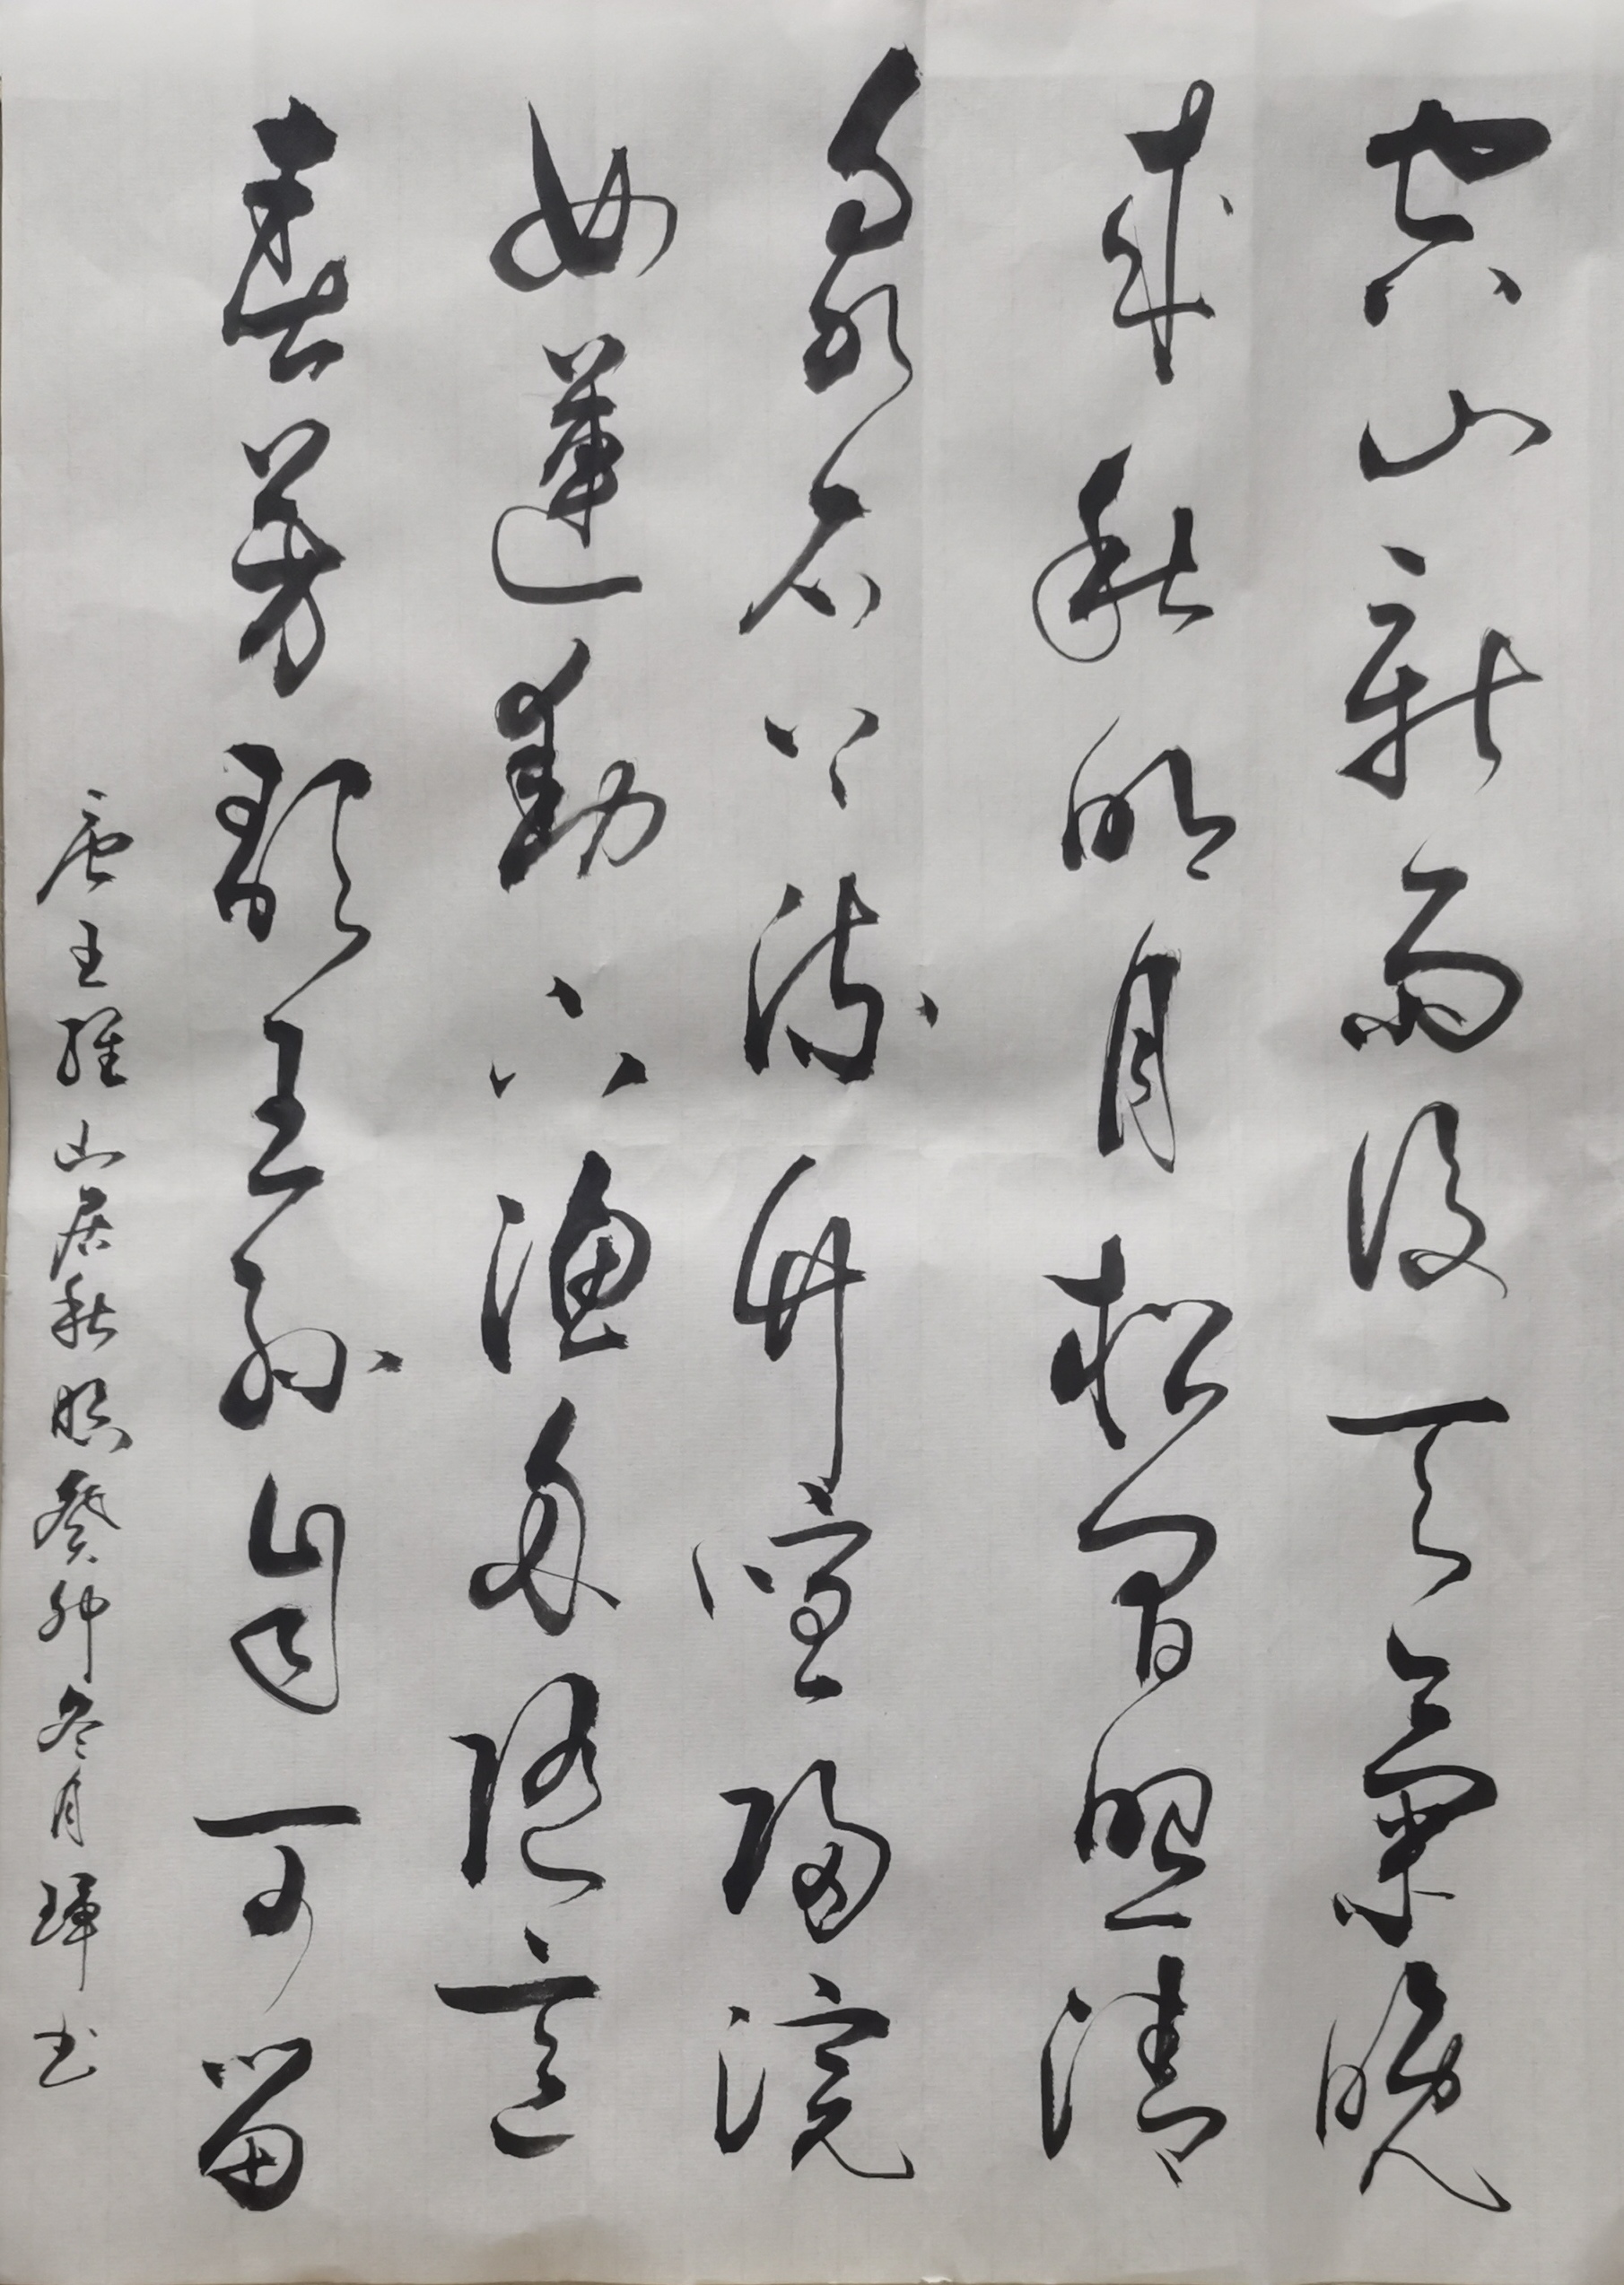 空山新雨後天氣晚
來秋明月松間照清
泉石上流竹喧歸浣
女蓮動下漁舟隨意
春芳歇王孫自可留
唐王維山居秋暝癸卯冬月琿书